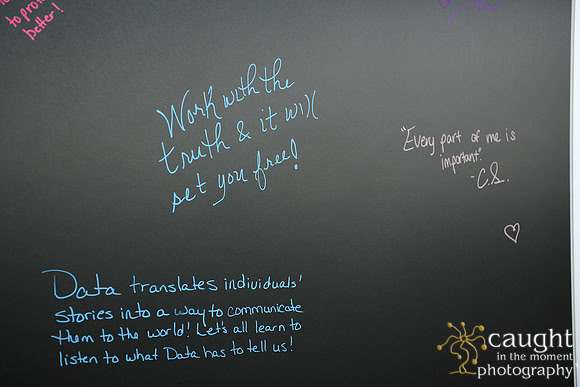 to pro
better!
Work with the
truth & it will
set you free!
"Every part of me is
important".
-C.S.
Data translates individuals'
stories into a way to communicate
them to the world! Let's all learn to
listen to what Data has to tell us!
caught
in the moment
photography